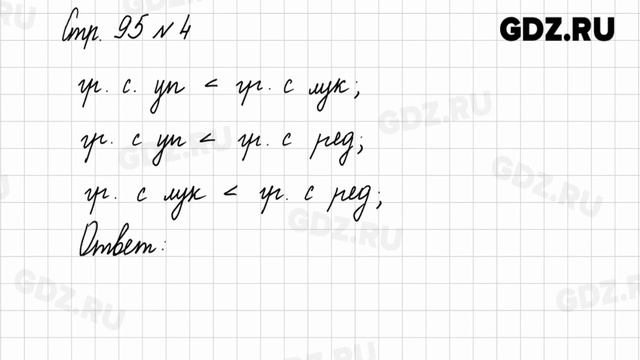 GDZ.RU
Стр. 95 № 4
гр. с. ук < гр. с лук;
гр. с ук < гр. с ред;
гр. с лук < гр. с ред;
Ответ:
GDZ.RU
GDZ.RU
GDZ.RU
GDZ.RU
GDZ.RU
GDZ.RU